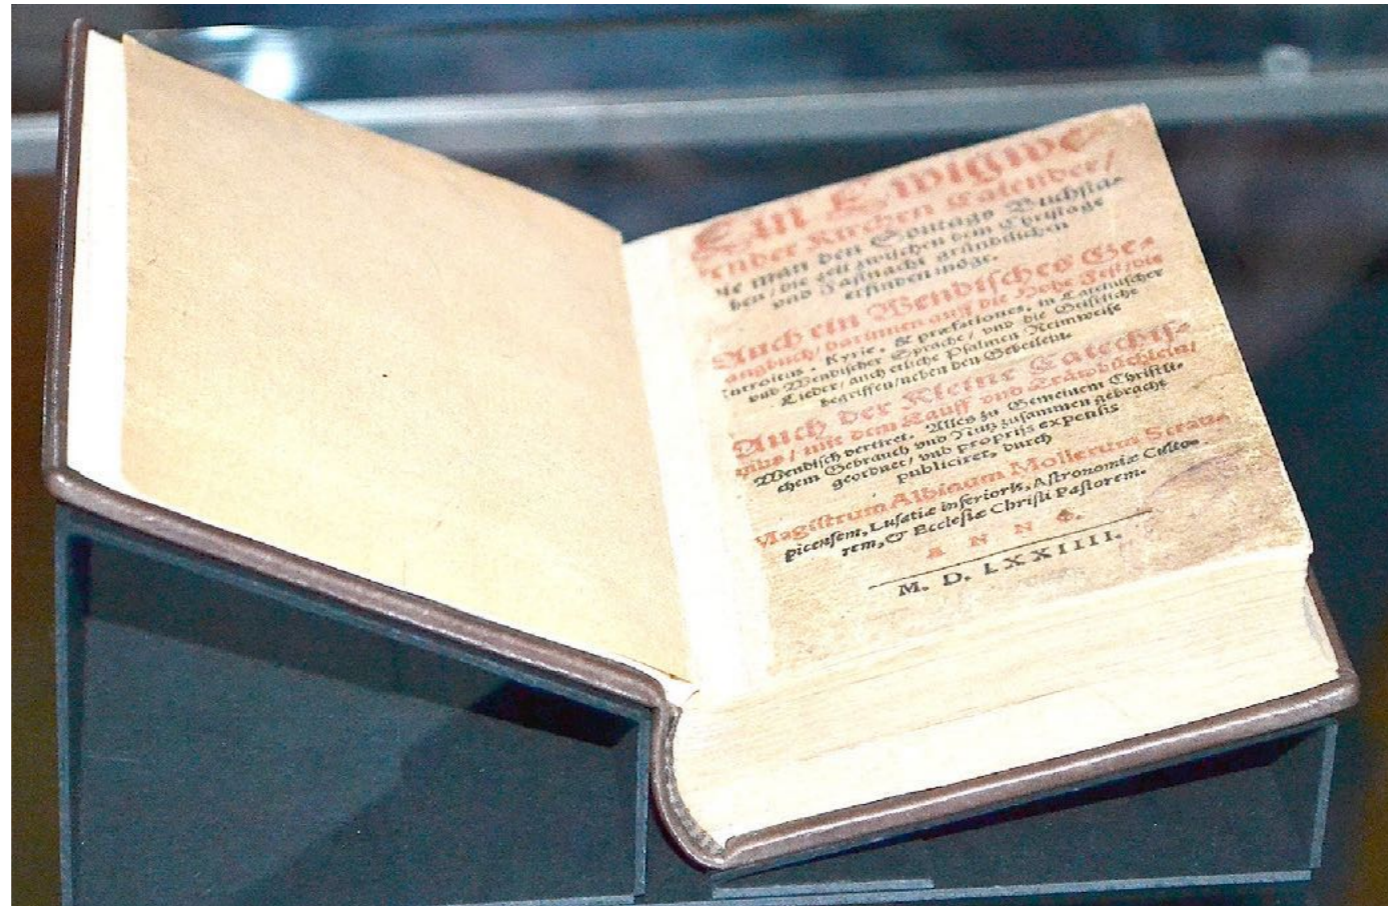 Ein Ewigwe
render Kirchen Calender/
wie man den Sontags Buchsta-
ben/die zeit zwischen dem Christage
vnd Fastnacht gründtlichen
erfinden möge.
Auch ein Wendisches Ge-
sangbuch/darinnen auff die Hohe Fest/die
Introitus, Kyrie, & præfationes, in Lateinischer
vnd Wendischer Sprache/ vnd die Geistliche
Lieder/auch etliche Psalmen Reimweise
begriffen/neben den Gebetlein.
Auch der Kleine Catechis-
mus/ mit dem Tauff vnd Trawbüchlein/
Wendisch vertiret. Alles zu Gemeinem Christli-
chem Gebrauch vnd Nutz zusammen gebracht
geordnet/ vnd proprijs expensis
publiciret, durch
Magistrum Albinum Mollerum Strau-
picensem, Lusatiæ inferioris, Astronomiæ Culto-
rem, & Ecclesiæ Christi Pastorem.
A N N O.
M. D. LXXIIII.